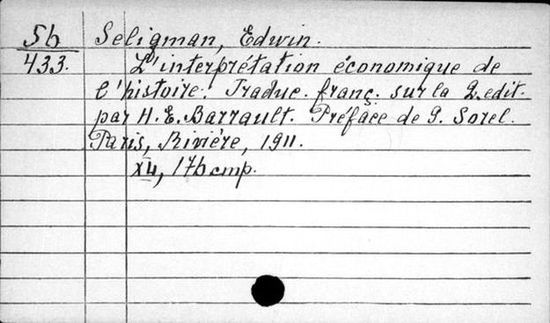 56 Seligman, Edwin.
433. L'interprétation économique de
l'histoire. Traduc. franç. sur la 2 edit.
par H. E. Barrault. Préface de G. Sorel.
Paris, Rivière, 1911.
XII, 176 стр.